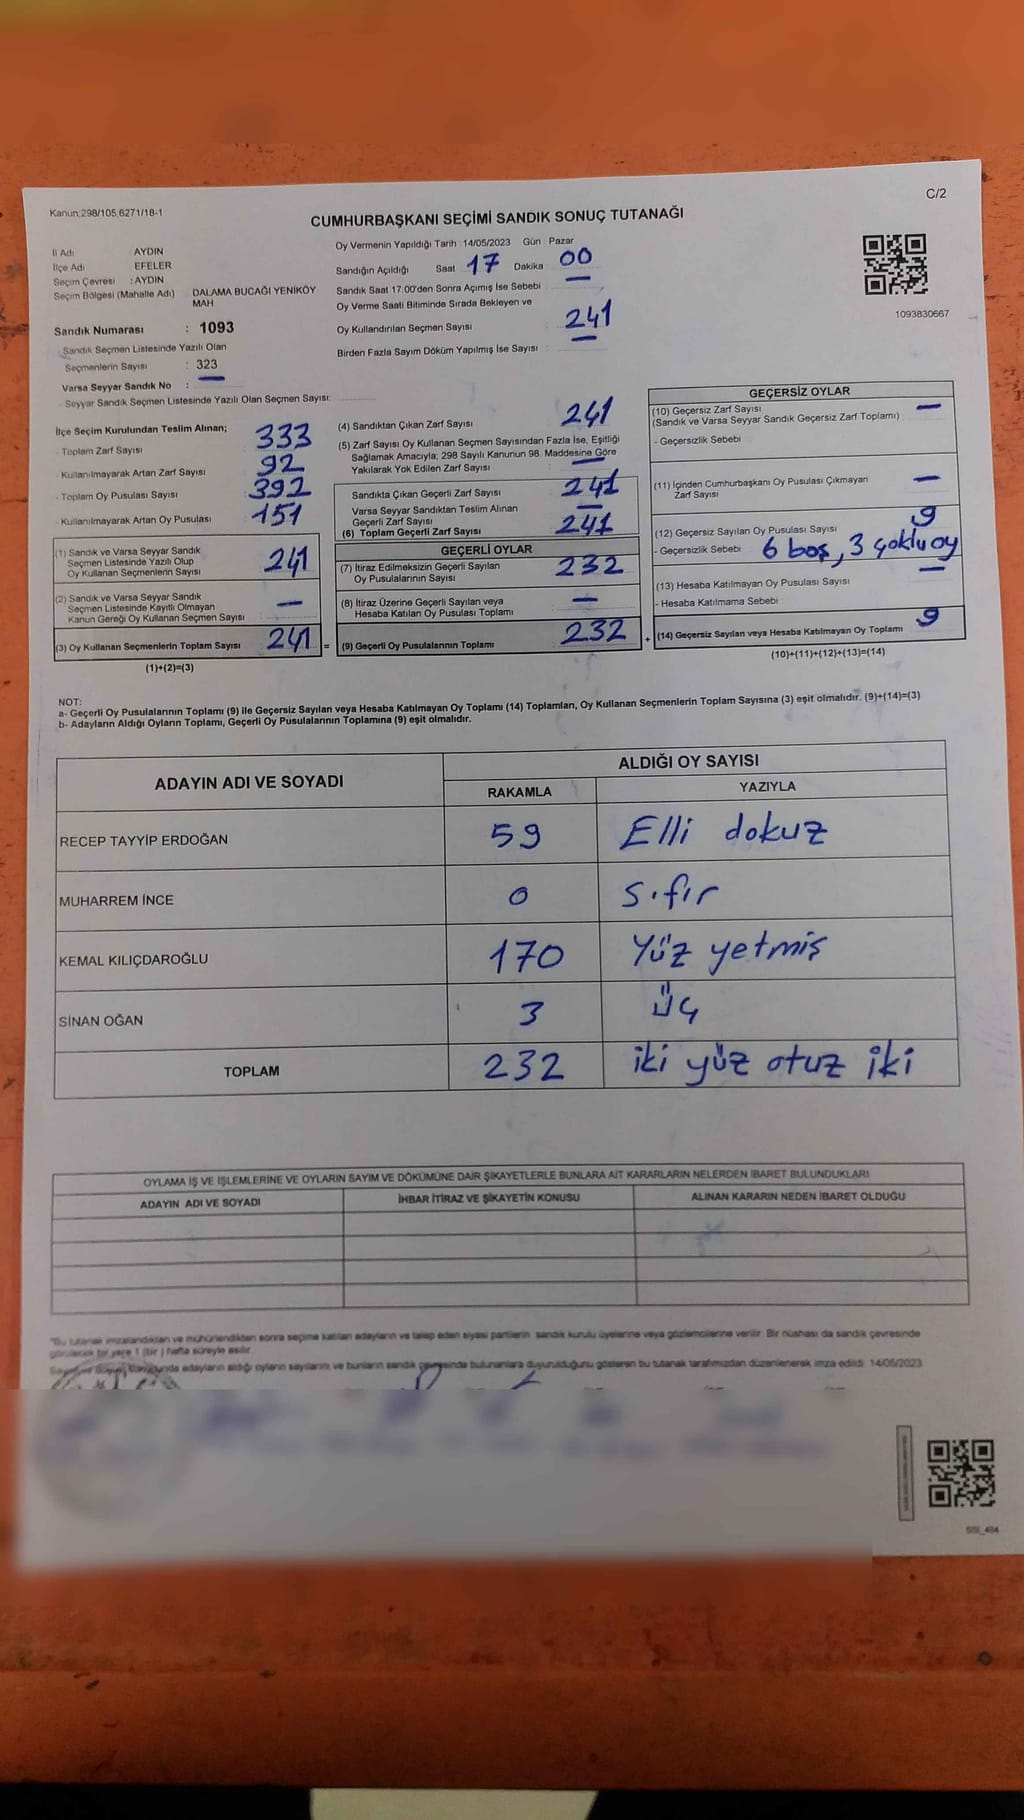 Kanun;298/105,6271/18-1
C/2
CUMHURBAŞKANI SEÇİMİ SANDIK SONUÇ TUTANAĞI
İl Adı AYDIN
İlçe Adı EFELER
Seçim Çevresi : AYDIN
Seçim Bölgesi (Mahalle Adı) DALAMA BUCAĞI YENİKÖY
MAH
Sandık Numarası : 1093
Sandık Seçmen Listesinde Yazılı Olan
Seçmenlerin Sayısı : 323
Varsa Seyyar Sandık No : —
- Seyyar Sandık Seçmen Listesinde Yazılı Olan Seçmen Sayısı:
Oy Vermenin Yapıldığı Tarih : 14/05/2023 Gün : Pazar
Sandığın Açıldığı Saat 17 Dakika 00
Sandık Saat 17.00'den Sonra Açımış İse Sebebi : —
Oy Verme Saati Bitiminde Sırada Bekleyen ve
Oy Kullandırılan Seçmen Sayısı : 241
Birden Fazla Sayım Döküm Yapılmış İse Sayısı : —
1093830667
İlçe Seçim Kurulundan Teslim Alınan;
- Toplam Zarf Sayısı 333
- Kullanılmayarak Artan Zarf Sayısı 92
- Toplam Oy Pusulası Sayısı 392
- Kullanılmayarak Artan Oy Pusulası 151
(1) Sandık ve Varsa Seyyar Sandık
Seçmen Listesinde Yazılı Olup
Oy Kullanan Seçmenlerin Sayısı 241
(2) Sandık ve Varsa Seyyar Sandık
Seçmen Listesinde Kayıtlı Olmayan
Kanun Gereği Oy Kullanan Seçmen Sayısı —
(3) Oy Kullanan Seçmenlerin Toplam Sayısı 241 =
(1)+(2)=(3)
(4) Sandıktan Çıkan Zarf Sayısı 241
(5) Zarf Sayısı Oy Kullanan Seçmen Sayısından Fazla İse, Eşitliği
Sağlamak Amacıyla; 298 Sayılı Kanunun 98. Maddesine Göre
Yakılarak Yok Edilen Zarf Sayısı —
Sandıkta Çıkan Geçerli Zarf Sayısı 241
Varsa Seyyar Sandıktan Teslim Alınan
Geçerli Zarf Sayısı —
(6) Toplam Geçerli Zarf Sayısı 241
GEÇERLİ OYLAR
(7) İtiraz Edilmeksizin Geçerli Sayılan
Oy Pusulalarının Sayısı 232
(8) İtiraz Üzerine Geçerli Sayılan veya
Hesaba Katılan Oy Pusulası Toplamı —
(9) Geçerli Oy Pusulalarının Toplamı 232 +
GEÇERSİZ OYLAR
(10) Geçersiz Zarf Sayısı —
(Sandık ve Varsa Seyyar Sandık Geçersiz Zarf Toplamı)
- Geçersizlik Sebebi
(11) İçinden Cumhurbaşkanı Oy Pusulası Çıkmayan —
Zarf Sayısı
(12) Geçersiz Sayılan Oy Pusulası Sayısı 9
- Geçersizlik Sebebi 6 boş, 3 çoklu oy
(13) Hesaba Katılmayan Oy Pusulası Sayısı —
- Hesaba Katılmama Sebebi
(14) Geçersiz Sayılan veya Hesaba Katılmayan Oy Toplamı 9
(10)+(11)+(12)+(13)=(14)
NOT:
a- Geçerli Oy Pusulalarının Toplamı (9) ile Geçersiz Sayılan veya Hesaba Katılmayan Oy Toplamı (14) Toplamları, Oy Kullanan Seçmenlerin Toplam Sayısına (3) eşit olmalıdır. (9)+(14)=(3)
b- Adayların Aldığı Oyların Toplamı, Geçerli Oy Pusulalarının Toplamına (9) eşit olmalıdır.
ADAYIN ADI VE SOYADI ALDIĞI OY SAYISI
RAKAMLA YAZIYLA
RECEP TAYYİP ERDOĞAN 59 Elli dokuz
MUHARREM İNCE 0 Sıfır
KEMAL KILIÇDAROĞLU 170 Yüz yetmiş
SİNAN OĞAN 3 üç
TOPLAM 232 iki yüz otuz iki
OYLAMA İŞ VE İŞLEMLERİNE VE OYLARIN SAYIM VE DÖKÜMÜNE DAİR ŞİKAYETLERLE BUNLARA AİT KARARLARIN NELERDEN İBARET BULUNDUKLARI
ADAYIN ADI VE SOYADI İHBAR İTİRAZ VE ŞİKAYETİN KONUSU ALINAN KARARIN NEDEN İBARET OLDUĞU
*Bu tutanak imzalandıktan ve mühürlendikten sonra seçime katılan adayların ve talep eden siyasi partilerin sandık kurulu üyelerine veya gözlemcilerine verilir. Bir nüshası da sandık çevresinde
görülecek bir yere 1 (bir ) hafta süreyle asılır.
adayların aldığı oyların sayılarını ve bunların sandık çevresinde bulunanlara duyurulduğunu gösteren bu tutanak tarafımızdan düzenlenerek imza edildi. 14/05/2023